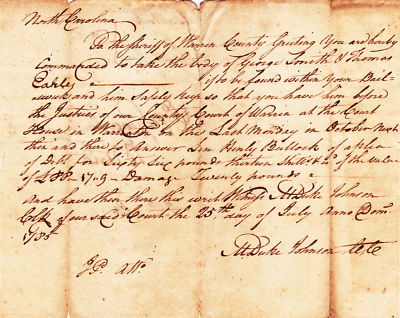 North Carolina
To the Sheriff of Warren County Greeting You are hereby
Commanded to take the body of George Smith & Thomas
Earley if to be found within your Baili-
wick and him Safely keep so that you have him before
the Justices of our County Court of Warren at the Court
House in on the Last Monday in October Next
then and there to Answer Len Henly Bullock of a plea
of Debt for Sixty Six pounds thirteen Shill & of the value
of £ 17 9 Damage Twenty pounds
and have then there this writ Witness M. Duke Johnson
Clk of our said Court the 25th day of July Anno Dom.
M. Duke Johnson